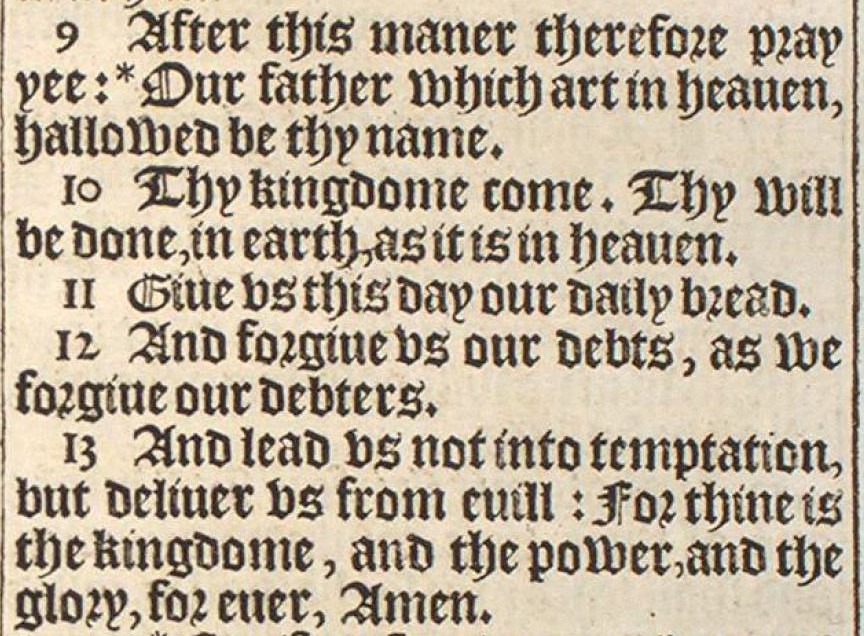 9 After this maner therefore pray
yee:* Our father which art in heauen,
hallowed be thy name.
10 Thy kingdome come. Thy will
be done, in earth, as it is in heauen.
11 Giue vs this day our daily bread.
12 And forgiue vs our debts, as we
forgiue our debters.
13 And lead vs not into temptation,
but deliuer vs from euill: For thine is
the kingdome, and the power, and the
glory, for euer, Amen.